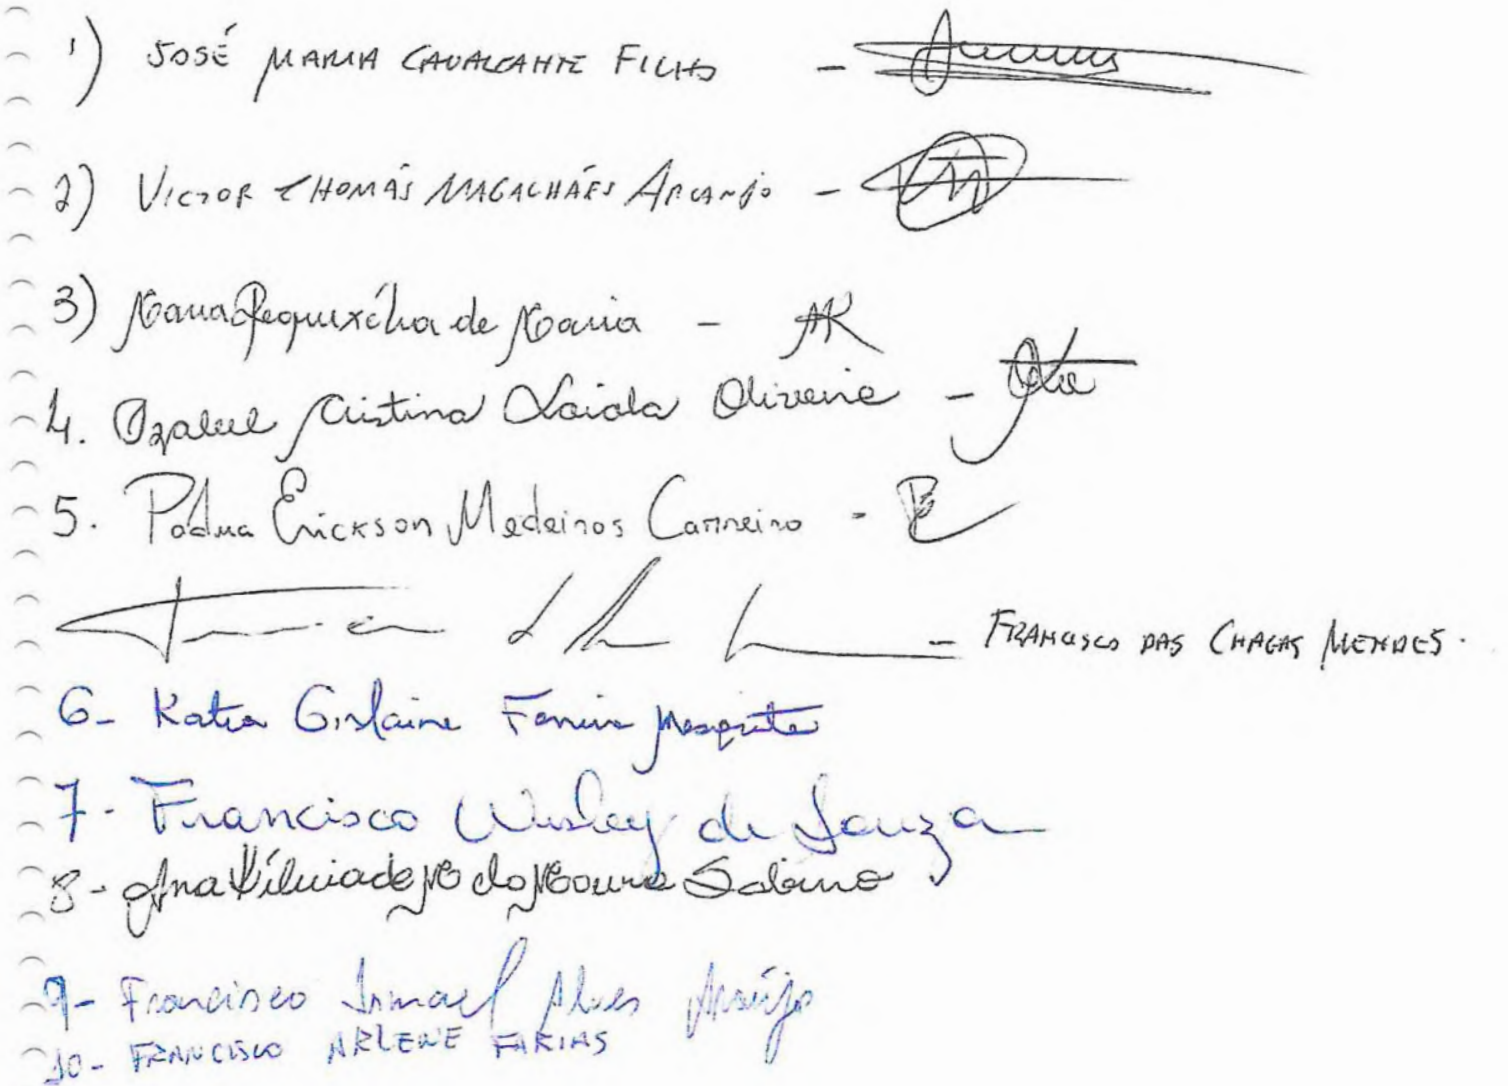 1) JOSÉ MARIA CAVALCANTE FILHO -
2) VICTOR THOMÁS MAGALHÃES ARCANJO -
3) Maria Requixélia de Maria -
4. Izabel Cristina Loiola Oliveira -
5. Pádua Erickson Medeiros Carneiro -
- FRANCISCO DAS CHAGAS MENDES.
6- Katia Gislaine Mesquita
7- Francisco Wesley de Souza
8- Ana de M do Moura Sabino
9- Francisco Ismael Alves Araújo
10- FRANCISCO ARLENE FARIAS